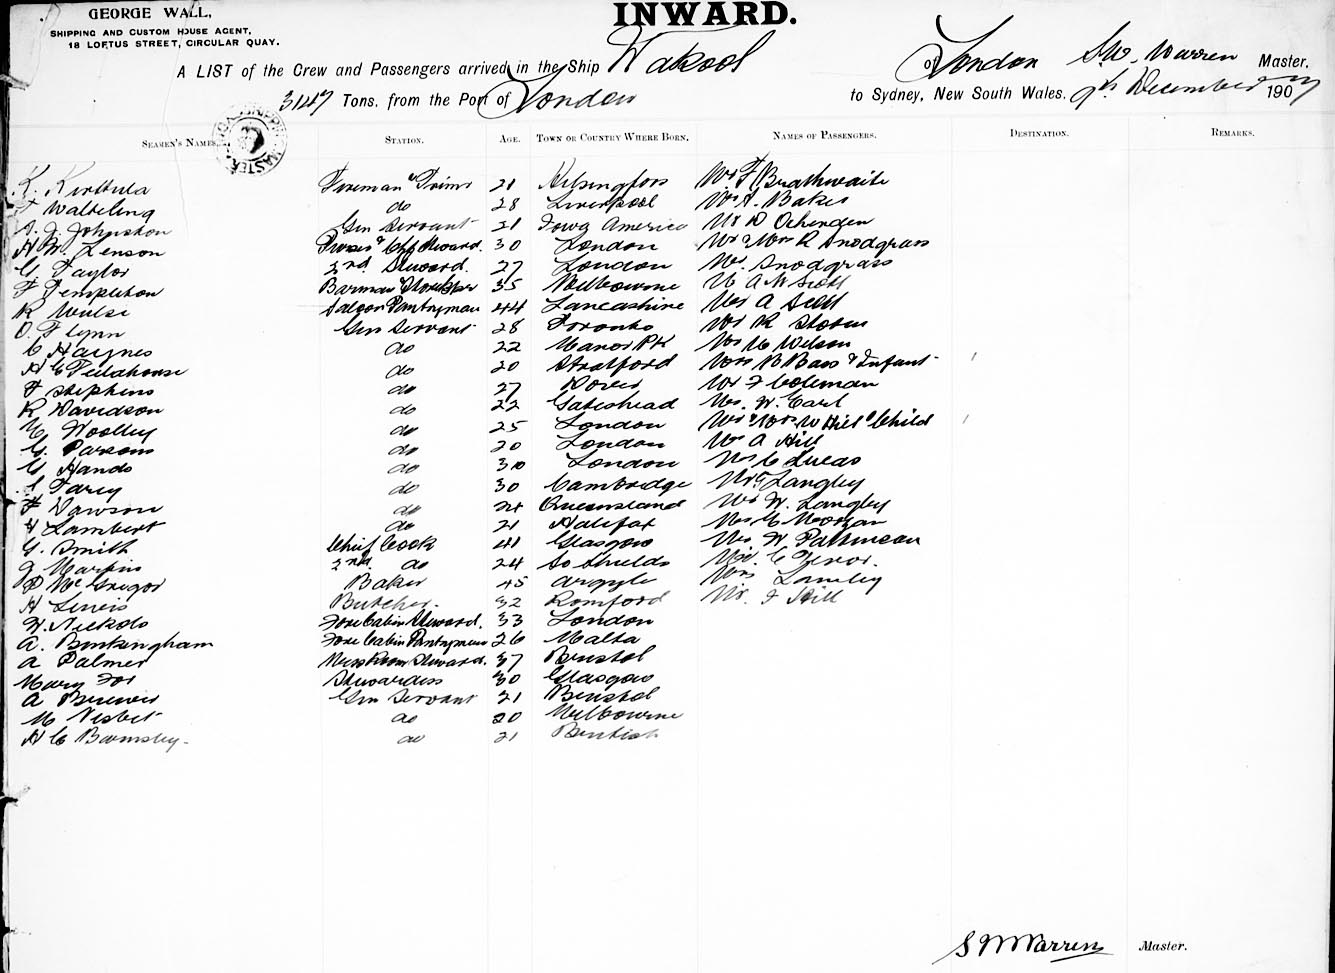 GEORGE WALL,
SHIPPING AND CUSTOM HOUSE AGENT,
18 LOFTUS STREET, CIRCULAR QUAY.
INWARD.
A LIST of the Crew and Passengers arrived in the Ship Wakool of London S.W. Warren Master,
3147 Tons, from the Port of London to Sydney, New South Wales. 9th December 1907
SEAMEN'S NAMES. STATION. AGE. TOWN OR COUNTRY WHERE BORN. NAMES OF PASSENGERS. DESTINATION. REMARKS.
K. Fireman & Trimr 21 Helsingfors Mr F Brathwaite
F do 28 Liverpool Mr A. Baker
A. J. Johnston Gen Servant 21 Iowa America Mr D Ochenden
H. M. Lenson Purser & Chf Steward. 30 London Mr & Mrs R Snodgrass
G Taylor 2nd Steward. 27 London Mr. Snodgrass
F Templeton Barman & Storekpr 35 Melbourne M A W Scott
R Wulse Saloon Pantryman 44 Lancashire Mr A Scott
O. Flynn Gen Servant 28 Toronto Mr R Storm
C Haynes do 22 Manor Pk Mr C Wilson
H C Pellahouse do 20 Stratford Mrs B Bass & Infant
F Stephens do 27 Dover Mr F Coleman
R Davidson do 22 Gateshead Mr. W. Earl
C Woolley do 25 London Mr & Mrs W Hill & Child
G. Parsons do 20 London Mr A Hill
G Hands do 30 London Mr C Lucas
Farey do 30 Cambridge Mr Langley
F Dawson do 24 Queensland Mr W. Langley
H Lambert do 21 Halifax Mr G Morgan
G. Smith Chief Cook 41 Glasgow Mr W
J Martin 2nd do 24 So Shields C Trevor.
D McGregor Baker 45 Argyle Lamley
H Lewis Butcher. 32 Romford Mr. F Hill
W. Nickols Fore Cabin Steward. 33 London
A. Buckingham Fore Cabin Pantryman 26 Malta
A Palmer Mess Room Steward. 37 Bristol
Mary Fox Stewardess 30 Glasgow
A Brewer Gen Servant 21 Bristol
M Nesbit do 20 Melbourne
H C Barnsley do 21
S W Warren Master.